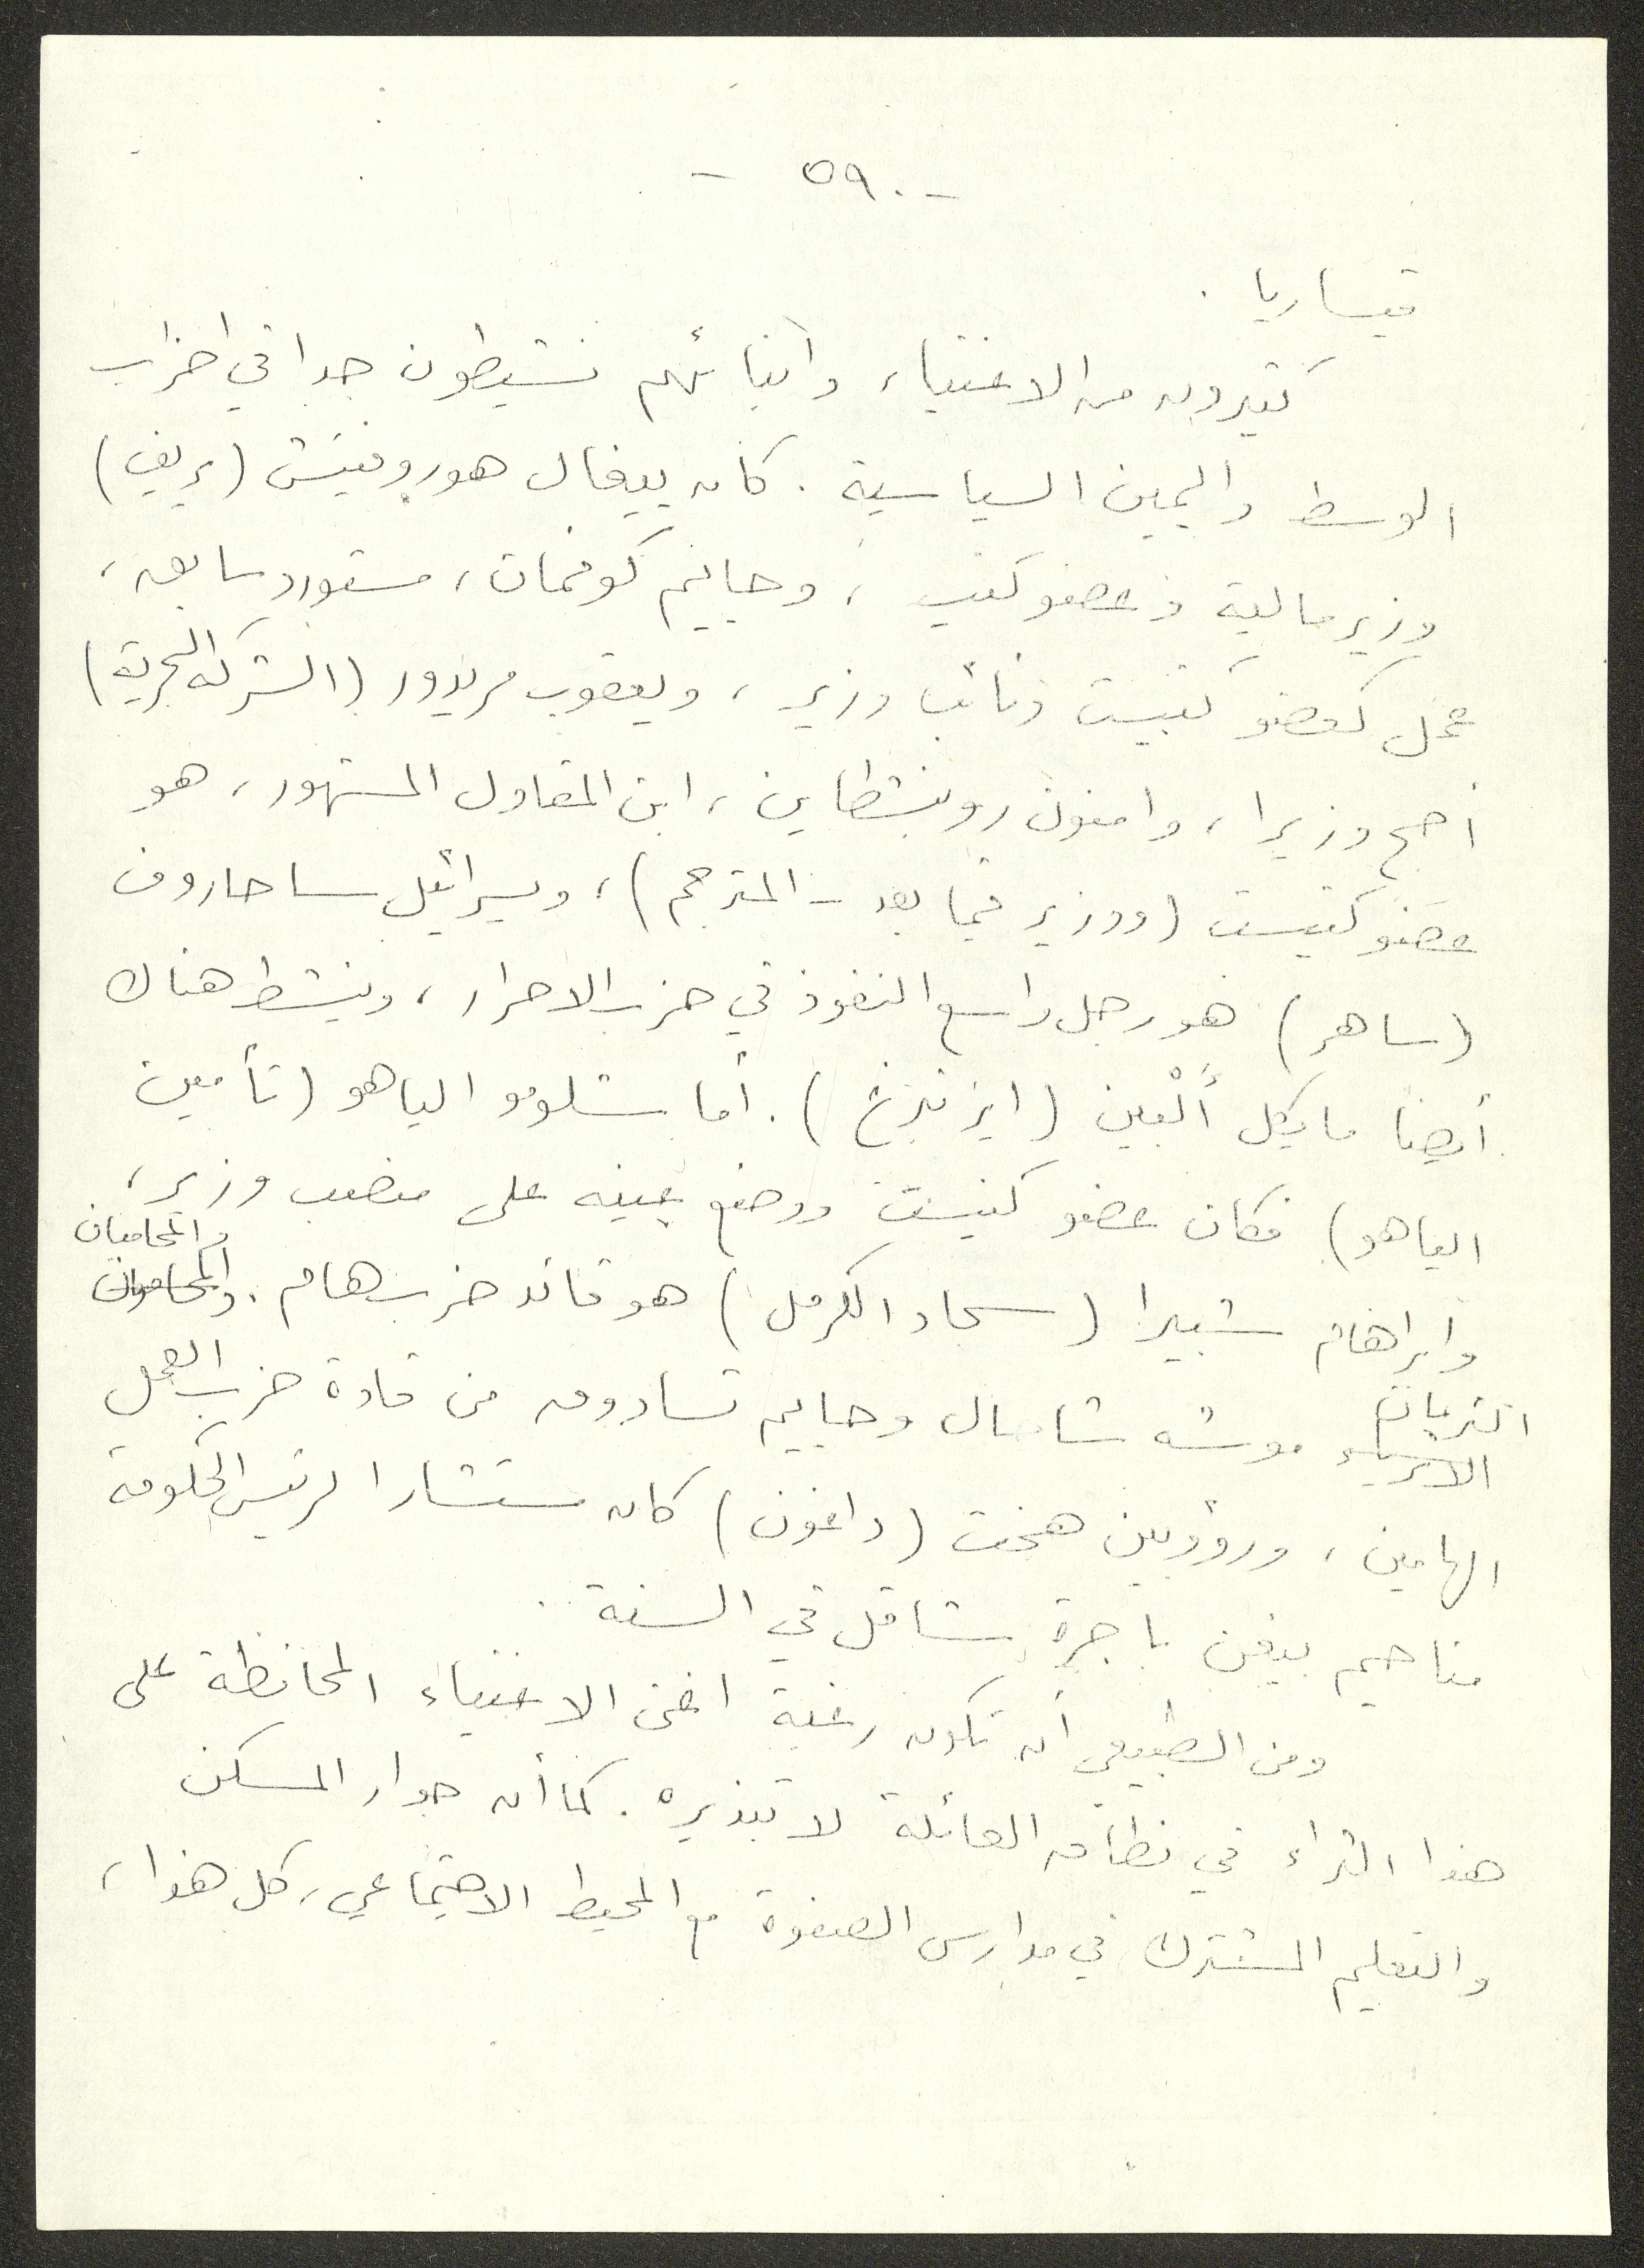 - ٥٩٠ -
قيساريا .
كثيرون من الاغنياء وابنائهم نشيطون جدا في احزاب
الوسط واليمين السياسية . كان ييغال هوروفيتش (يريف)
وزير مالية وعضو كنيست ، وحاييم كوفمان ، مستورد سابق ،
عمل كعضو كنيست ونائب وزير ، ويعقوب مريدور (الشركة البحرية)
أصبح وزيرا ، وامنون روبنشطاين ، ابن المقاول المشهور ، هو
عضو كنيست (ووزير فيما بعد - المترجم) ، ويسرائيل ساحاروف
(ساهر) هو رجل واسع النفوذ في حزب الاحرار ، وينشط هناك
أيضا مايكل ألبين ( ) . أما شلومو الياهو (تأمين
الياهو) فكان عضو كنيست ووضع عينه على منصب وزير ،
وابراهام شبيرا (سجاد الكرمل) هو قائد حزب هام . والمحاميان
الثريان موشه شاحال وحاييم تسادوق من قادة حزب العمل
الهامين ، ورؤوبين هخت (داغون) كان مستشارا لرئيس الحكومة
مناحيم بيغن باجرة شاقل في السنة .
ومن الطبيعي أن تكون رغبة اغنى الاغنياء المحافظة على
هذا الثراء في نطاق العائلة لا تبذيره . كما أن جوار المسكن
والتعليم المشترك في مدارس الصفوة مع المحيط الاجتماعي ، كل هذا ،